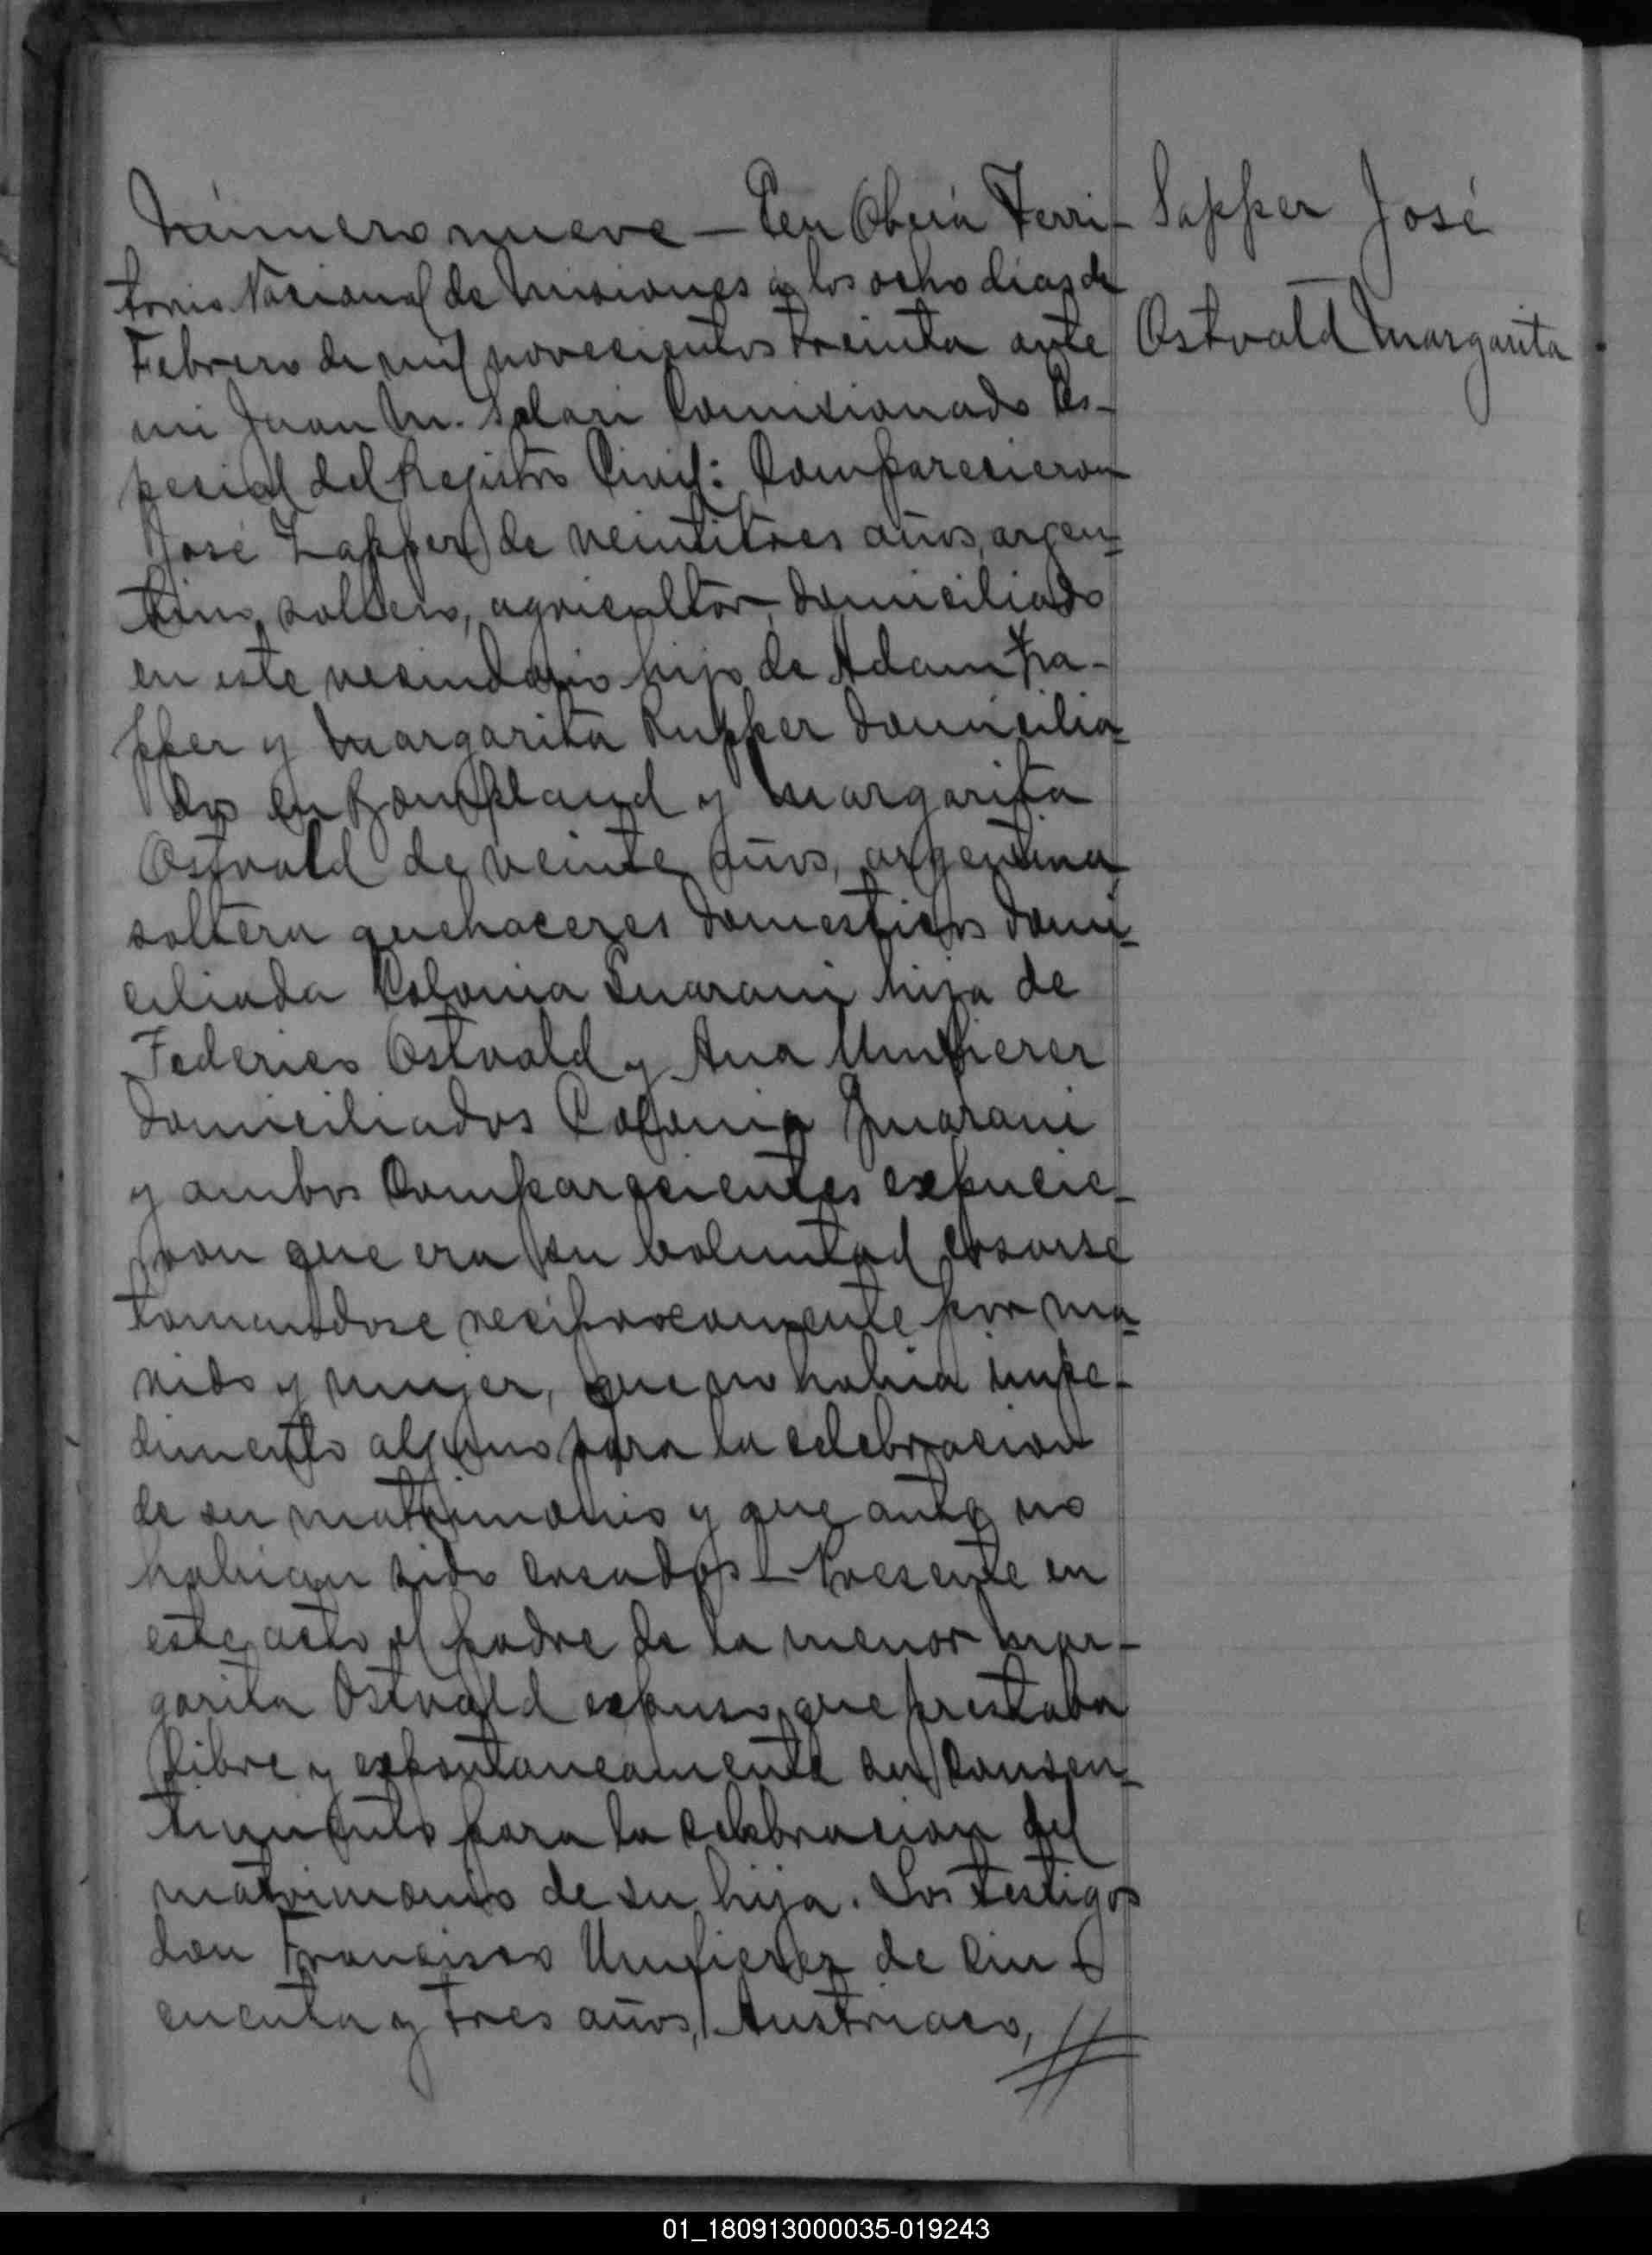 Número nueve — En Oberá Terri-
torio Nacional de Misiones á los ocho dias de
Febrero de mil novecientos treinta ante
mi Juan M. Solari Comisionado Es-
pecial del Registro Civil: Comparecieron
José Zapper de veintitres años, argen-
tino, soltero, agricultor, domiciliado
en este vecindario hijo de Adam
pper y Margarita Rupper domicilia-
dos en Bompland y Margarita
Ostvald de veinte años, argentina
soltera quehaceres domesticos domi-
ciliada Colonia Guarani hija de
Federico Ostvald y Ana Umfierer
domiciliados Colonia Guarani
y ambos comparecientes expucie-
ron que era su voluntad casarse
tomandose reciprocamente por ma-
rido y mujer, que no habia impe-
dimento alguno para la celebracion
de su matrimonio y que antes no
habian sido casados — Presente en
este acto el padre de la menor Mar-
garita Ostvald expuso que prestaba
libre y expontaneamente su consen-
timiento para la celebracion del
matrimonio de su hija. Los testigos
don Francisco Umfierer de cin-
cuenta y tres años, Austriaco,
Sapper José
Ostvald Margarita
01_180913000035-019243